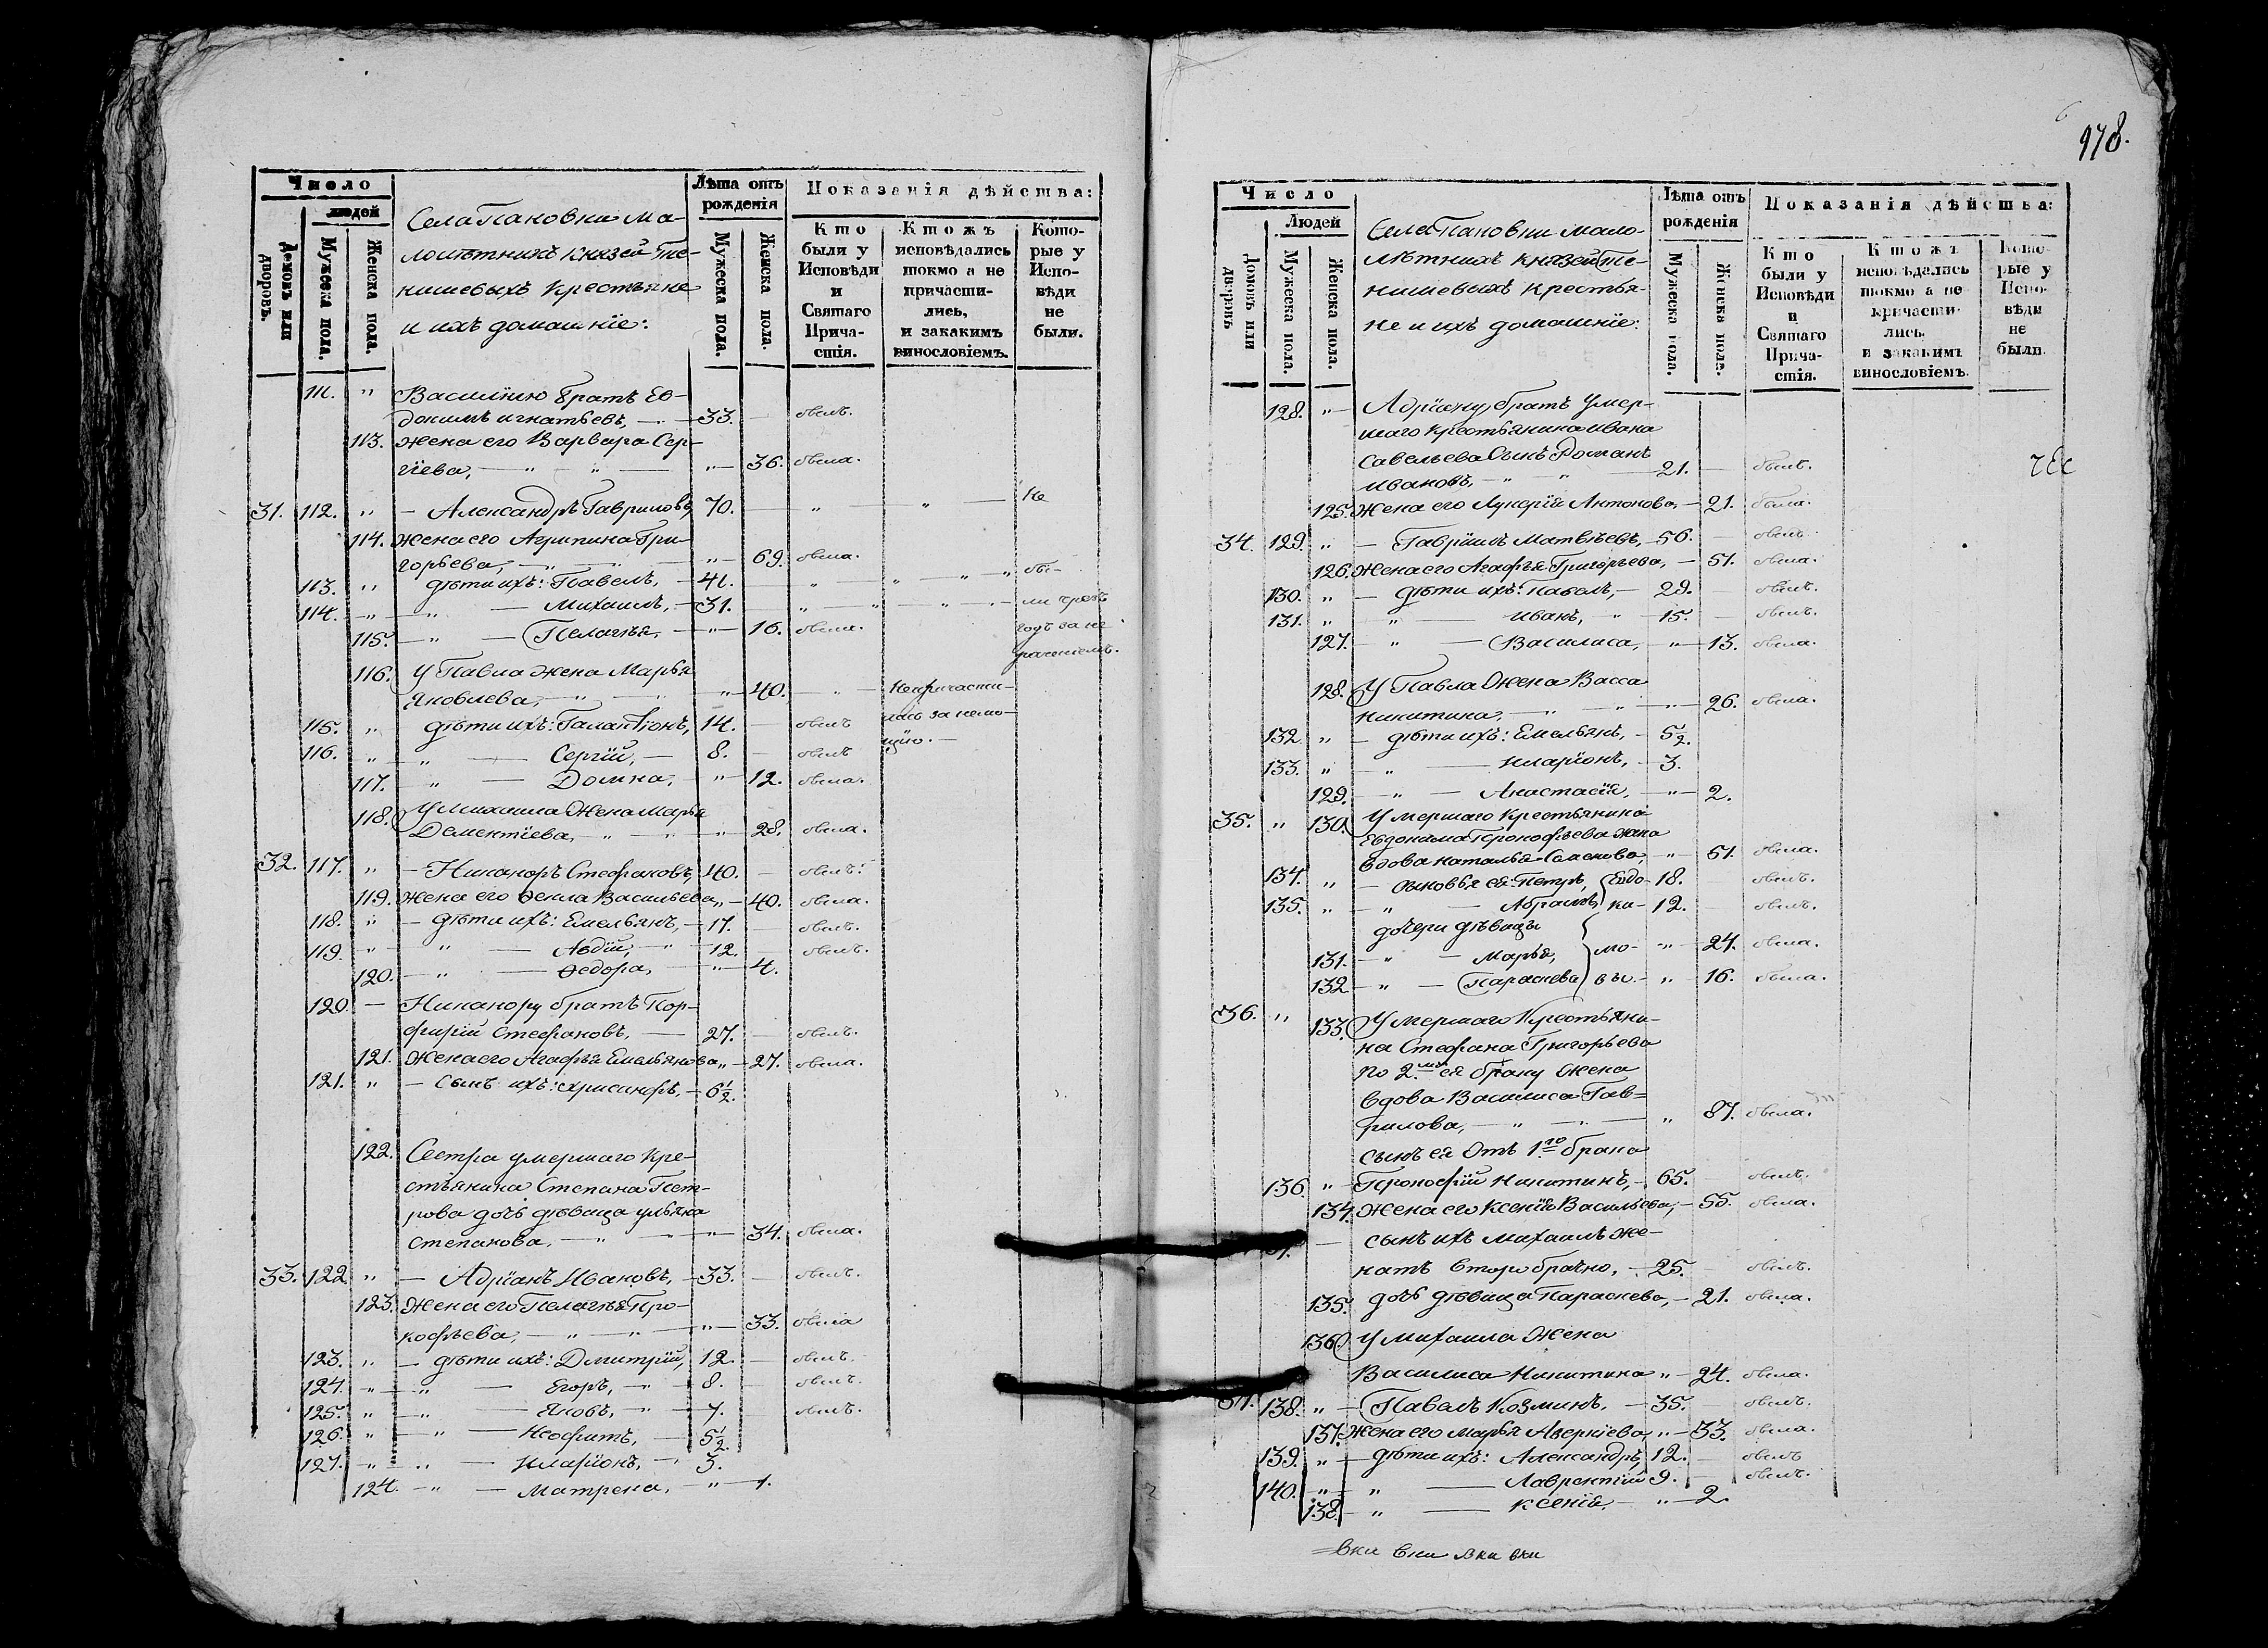 Число
людей
Домовъ или дворовъ.
Мужеска пола.
Женска пола.
Села Пановки Ма-
лолѣтнихъ Князей Те-
нишевыхъ Крестьяне
и ихъ домашніе:
Лѣта отъ рожденія
Мужеска пола.
Женска пола.
Показанія дѣйства:
Кто были у Исповѣди и Святаго Прича-стія.
Ктожъ исповѣдались токмо а не причасти-лись, и закакимъ винословіемъ.
Кото-рые у Испо-вѣди не были.
111. " Василию братъ Ев-
докимъ игнатьевъ, 33. былъ.
113. жена его Варвара Сер-
гіева, " 36. была.
31. 112. " Александръ Гавриловъ, 70. " " не
114. Жена его Агрипина Гри-
горьева, " 69. была.
113. " дѣти ихъ: Павелъ, 41. " " бы-
114. " Михаилъ, 31. " " ли чрезъ
115. " Пелагѣя, " 16. была. годъ за не
раченіемъ.
116. У Павла жена Марья
Яковлева, " 40. " непричасти-
115. " дѣти ихъ: Галактіонъ, 14. былъ лась за немо-
116. " Сергій, 8. былъ щію.
117. " Домна, " 12. была.
118. У Михаила Жена Марья
Дементіева, " 28. была.
32. 117. " Никаноръ Стефановъ, 40. былъ.
119. Жена его Ѳекла Васильева, " 40. была.
118. " дѣти ихъ: Емельянъ, 17. былъ.
119. " Авдій, 12. былъ.
120. " Ѳедора, " 4.
120. Никанору братъ Пор-
фирій Стефановъ, 27. былъ.
121. Жена его Агафья Емельянова, " 27. была.
121. " сынъ ихъ: Хрисанфъ, 6½.
122. Сестра умершаго Кре-
стьянина Степана Пет-
рова дочь дѣвица ульяна
Степанова, " 34. была.
33. 122. " Адріанъ Ивановъ, 33. былъ.
123. Жена его Пелагѣя Про-
кофьева, " 33. была
123. " дѣти ихъ: Дмитрій, 12. былъ.
124. " Егоръ, 8. былъ.
125. " Яковъ, 7. былъ.
126. " Неофитъ, 5½.
127. " Иларіонъ, 3.
124. " Матрена, " 1.
978.
Число
Людей
Домовъ или дворовъ
Мужеска пола.
Женска пола.
Села Пановки мало-
лѣтнихъ Князей Те-
нишевыхъ крестья-
не и ихъ домашніе:
Лѣта отъ рожденія
Мужеска пола.
Женска пола.
Показанія дѣйства:
Кто были у Исповѣди и Святаго Прича-стія.
Ктожъ исповѣдались токмо а не причасти-лись, и закакимъ винословіемъ.
Кото-рые у Испо-вѣди не были.
128. " Адріану, братъ умер-
шаго крестьянина ивана
Савельева Сынъ Романъ
ивановъ, 21. былъ.
125. Жена его Лукерія Антонова, 21. была.
34. 129. " Гавріилъ Матвѣевъ, 56. былъ.
126. Жена его Агафья Григорьева, 51. была.
130. " дѣти ихъ: павелъ, 29. былъ.
131. " иванъ, 15. былъ.
127. " Василиса, " 13. была.
128. У Павла Жена Васса
никитина, " 26. была.
132. " дѣти ихъ: Емельянъ, 5½.
133. " иларіонъ, 3.
129. " Анастасія, " 2.
35. " 130. Умершаго Крестьянина
Евдокима Прокофьева жена
вдова наталья Семенова, " 51. была.
134. " Сыновья ея: Петръ, Евдо- 18. былъ.
135. " Абрамъ, ки- 12. былъ.
дочери дѣвицы
131. " Марья, мо- " 24. была.
132. " Параскева вы. " 16. была.
36. " 133. Умершаго Крестьяни-
на Стефана Григорьева
по 2му ея браку жена
вдова Василиса Гав-
рилова, " 87. была.
сынъ ея Отъ 1го брака
136. " Прокофій Никитинъ, 65. былъ.
134. Жена его Ксенія Васильева, 55. была.
сынъ ихъ Михаилъ же-
натъ второбрачно, 25. былъ.
135. дочь дѣвица Параскева, 21. была.
136. У Михаила Жена
Василиса Никитина " 24. была.
37. 138. " Павелъ Козминъ, 35. былъ.
137. Жена его Марья Аверкіева, " 33. была.
139. " дѣти ихъ: Александръ, 12. былъ
140. " Лаврентій 9. былъ.
138. " Ксенія, " 2.